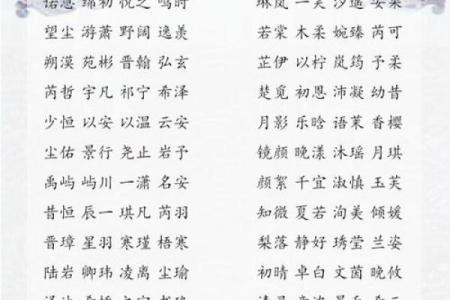 望尘 游萧 野阔 逸羡
朔漠 苑彬 晋翰 弘玄
芮哲 宇凡 祁宁 希泽
少恒 以安 以温 云安
尘佑 景行 尧止 岩予
禹屿 屿川 一潇 名安
昔恒 辰一 琪凡 芮羽
晋璋 星羽 寒瑾 梧寒
陆岩 卿玮 凌离 尘瑜
若棠 木柔 婉臻 芮可
芷伊 以柠 岚筠 予柔
楚觅 初恩 沛凝 幼昔
月影 乐晗 语茉 香樱
镜颜 晚漾 沐瑶 月琪
颜絮 千宜 淑慎 玉芙
知微 夏若 洵美 倾媛
梨落 静好 琇莹 兰姿
初晴 卓白 文茵 晚依